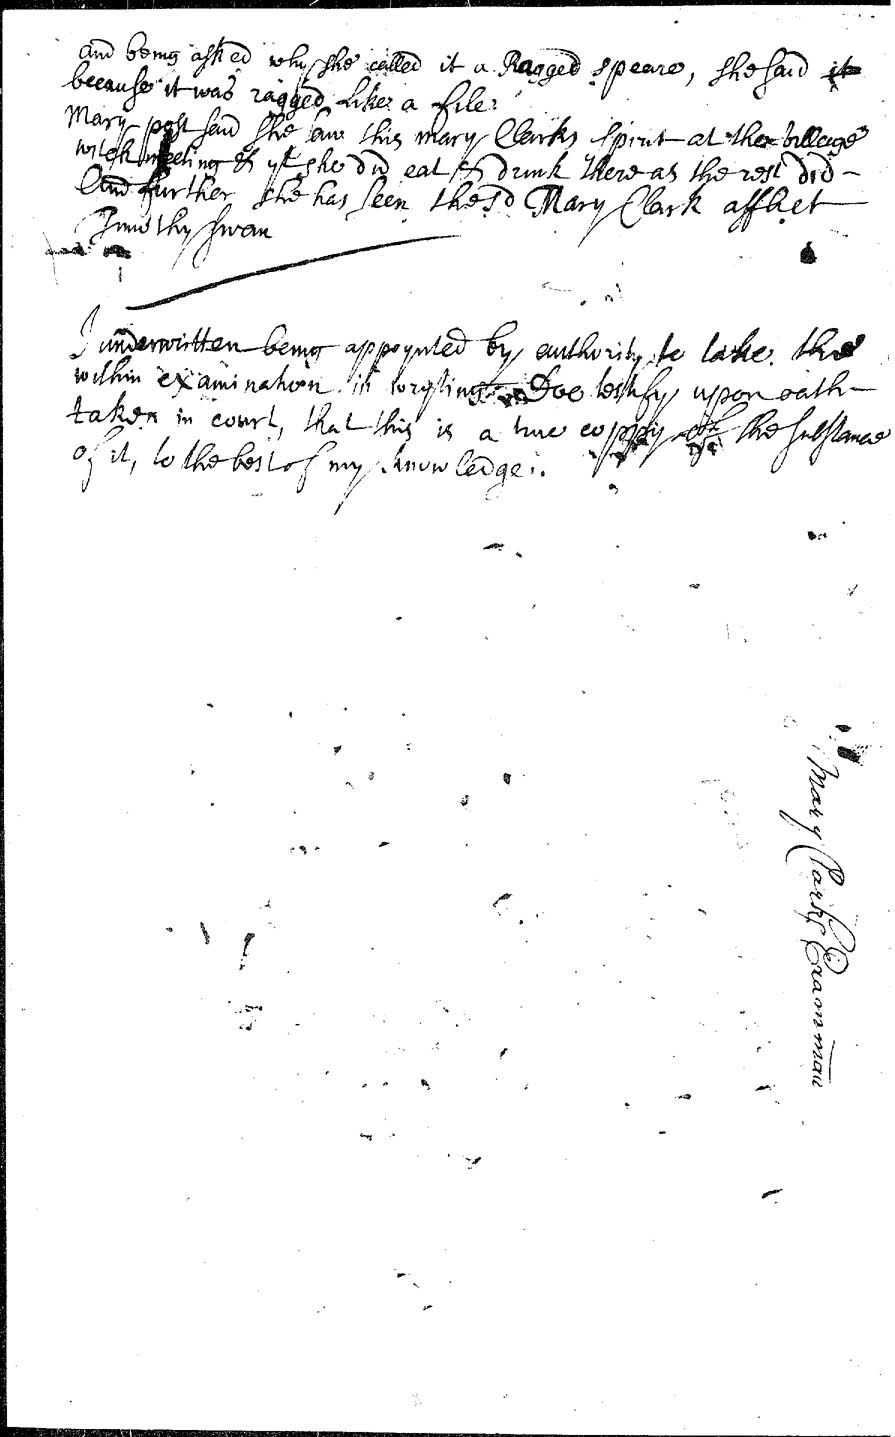 and being asked why she called it a Ragged speare, she said it
because it was ragged like a file.
Mary post said she saw this mary Clarks spirit at the village
witch meeting & yt she did eat & drink there as the rest did –
And further she has seen the sd Mary Clark afflict
Timothy Swan
I underwritten being appoynted by authority to take the
within examination in wryting Doe testify upon oath
taken in court, that this is a true coppy of the substance
of it, to the best of my knowledge.
Mary Clarks Examination